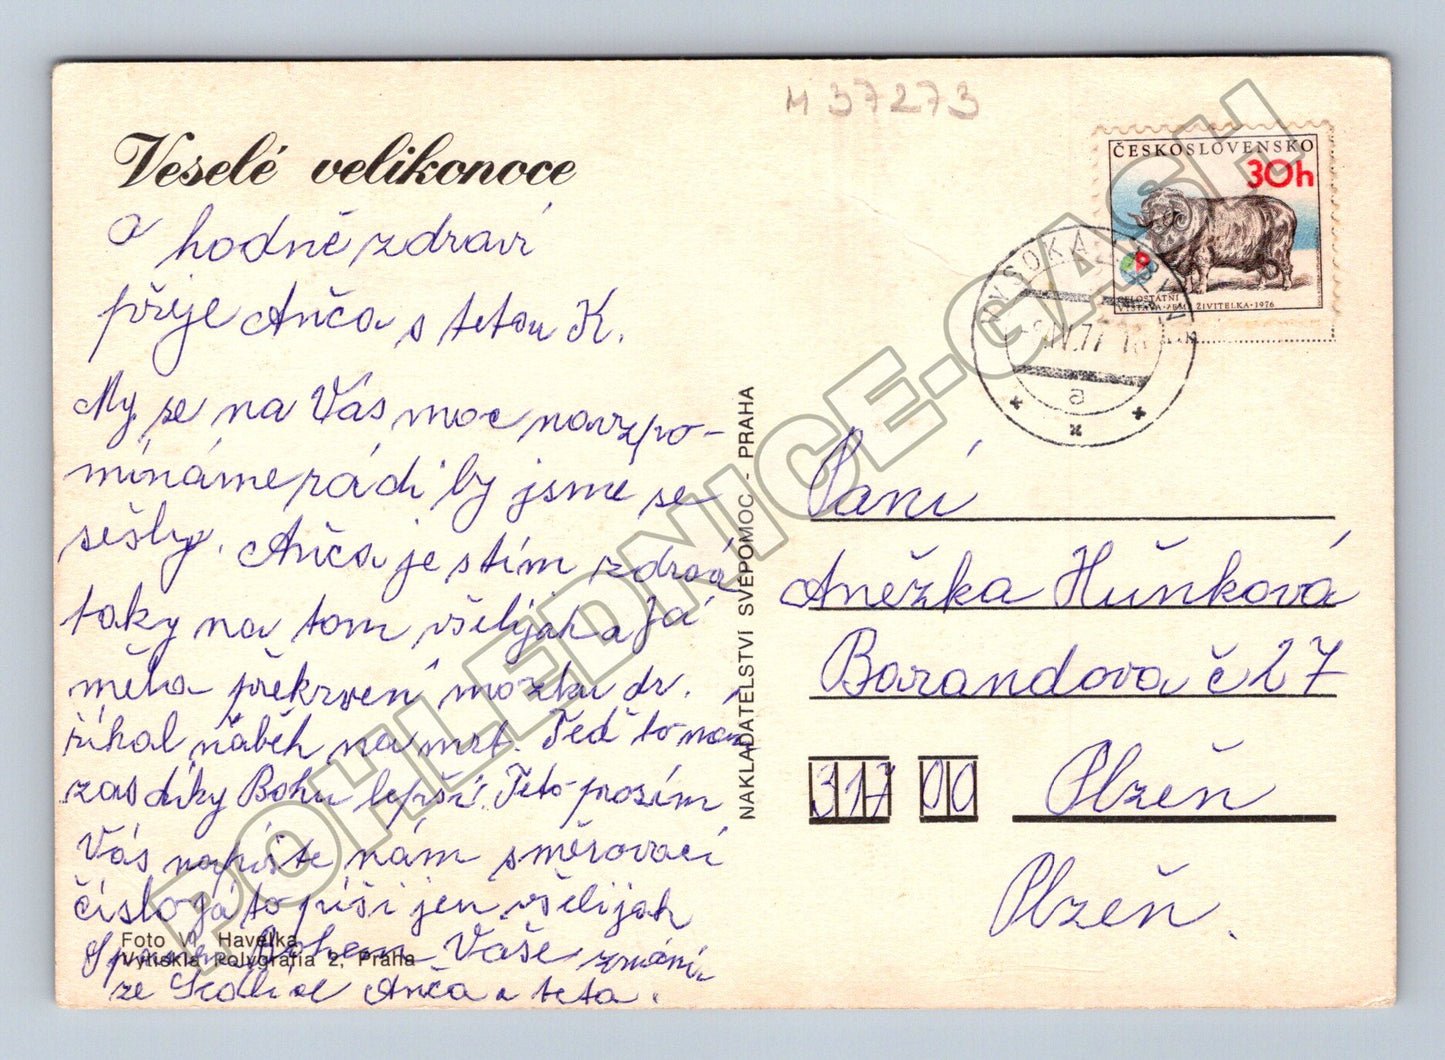 M 37273
Veselé velikonoce
a hodně zdraví
přeje Anča s tetou K.
My se na Vás moc navzpo-
mínáme rádi by jsme se
sešly. Anča je stím zdraví
taky na tom všelijak a Já
měla překrvení mozku dr.
říkal náběh na mrt. Teď to mám
zas díky Bohu lepší. Teto prosím
Vás napište nám směrovací
číslo já to píši jen všelijak
Spánem Bohem Vaše známí
ze Sedlice Anča a teta.
Foto Vl. Havelka
Vytiskla Polygrafia 2, Praha
NAKLADATELSTVÍ SVÉPOMOC - PRAHA
ČESKOSLOVENSKO
30h
CELOSTÁTNÍ
VÝSTAVA ZEMĚ ŽIVITELKA • 1976
VYSOKÁ
IV.77
a
Paní
Anežka Huňková
Barandova č 27
317 00 Plzeň
Plzeň.
POHLEDNICE-GASH